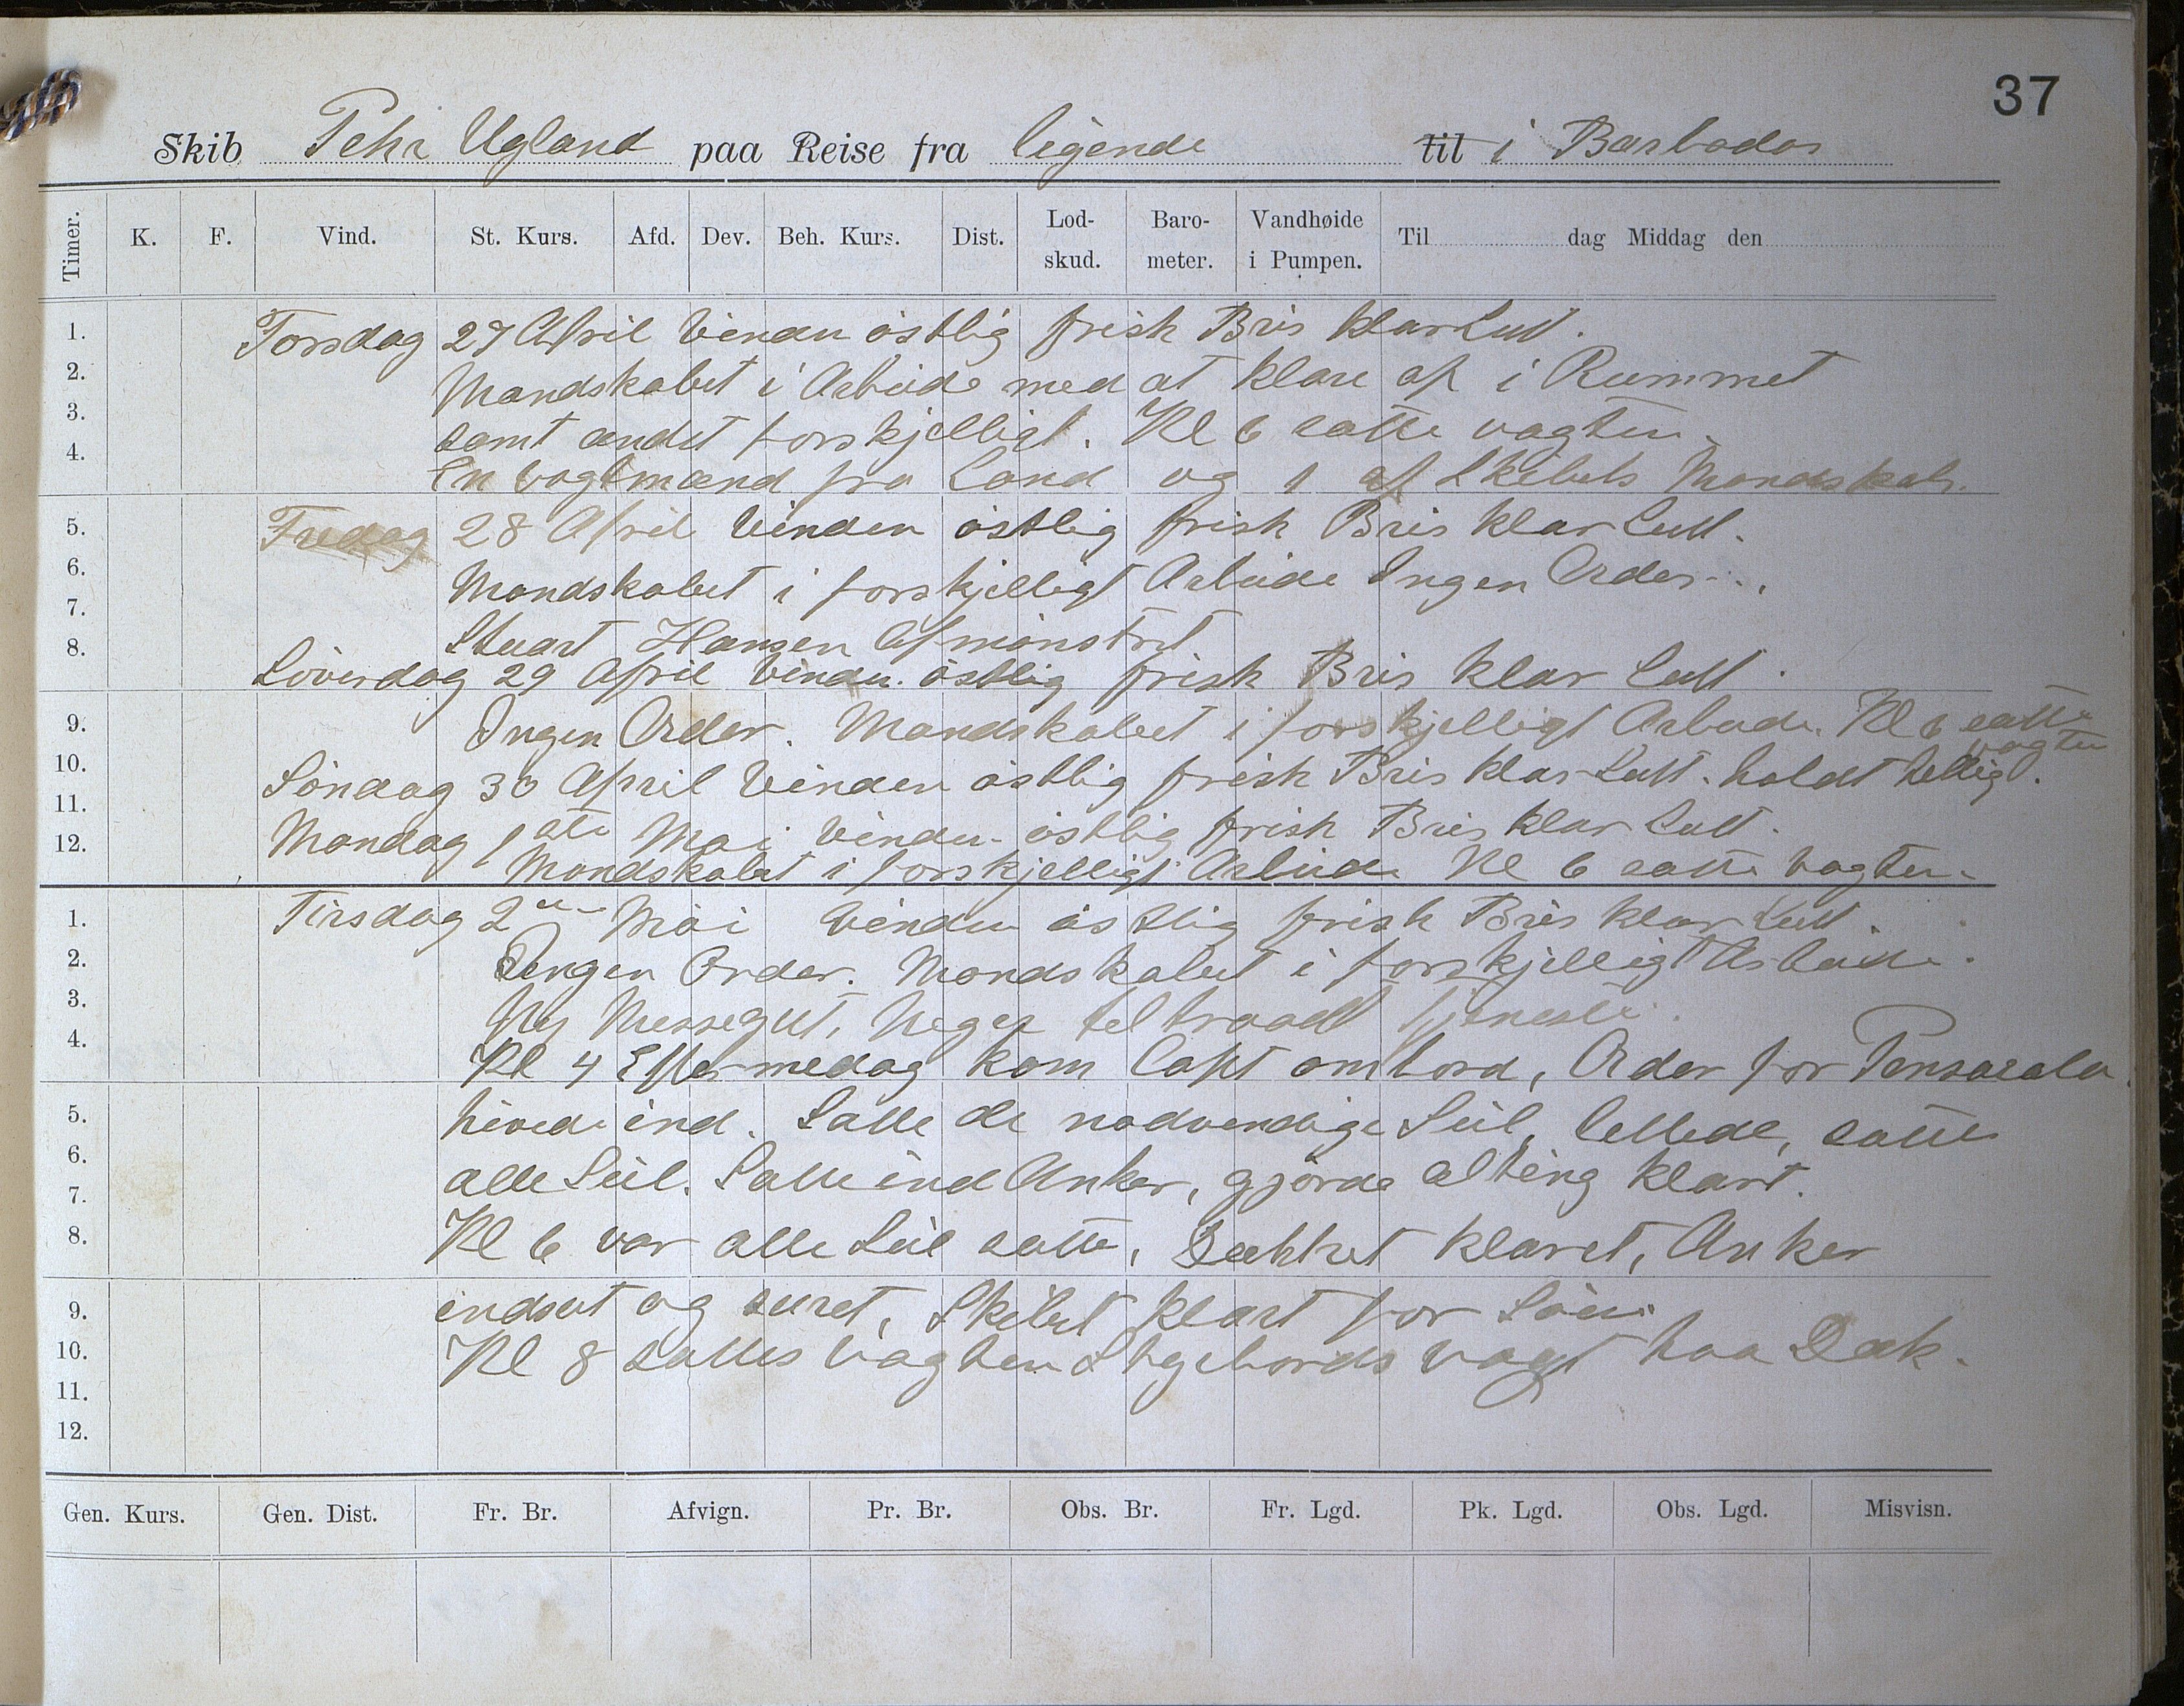 37
Skib Pehr Ugland paa Reise fra ligende til i Barbados
Timer. K. F. Vind. St. Kurs. Afd. Dev. Beh. Kurs. Dist. Lod-skud. Baro-meter. Vandhøide i Pumpen. Til dag Middag den
1. Torsdag 27 April Vinden östlig frisk Bris klar Luft.
2. Mandskabet i Arbeide med at klare op i Rummet
3. samt andet forskjelligt. Kl 6 satte vagten.
4. En vagtmand fra Land og 1 af Skibets Mandskab.
5. Fredag 28 April Vinden östlig frisk Bris klar Luft.
6. Mandskabet i forskjelligt Arbeide Ingen Order.
7. Stuart Hansen Afmönstret
8. Löverdag 29 April Vinden östlig frisk Bris klar Luft.
9. Ingen Order. Mandskabet i forskjelligt Arbeide. Kl 6 satte
vagten
10. Söndag 30 April Vinden östlig frisk Bris klar Luft. holdt helligt.
11. Mandag 1ste Mai Vinden östlig frisk Bris klar Luft.
12. Mandskabet i forskjelligt Arbeide Kl 6 satte vagten.
1. Tirsdag 2den Mai Vinden östlig frisk Bris klar Luft.
2. Ingen Order. Mandskabet i forskjelligt Arbeide.
3. Ny Messegut, Neger tiltraadt tjeneste.
4. Kl 4 Eftermedag kom Capt ombord, Order for Pensacola.
5. hivede ind. Satte de nødvendige Seil, lettede, satte
6. alle Seil. Satte ind Anker, gjorde alting klart.
7.
8. Kl 6 var alle Seil satte, Dækket klaret, Anker
9. indsat og suret, Skibet klart for Söen.
10. Kl 8 sattes Vagten Styrbords vagt paa Dæk.
11.
12.
Gen. Kurs. Gen. Dist. Fr. Br. Afvign. Pr. Br. Obs. Br. Fr. Lgd. Pk. Lgd. Obs. Lgd. Misvisn.